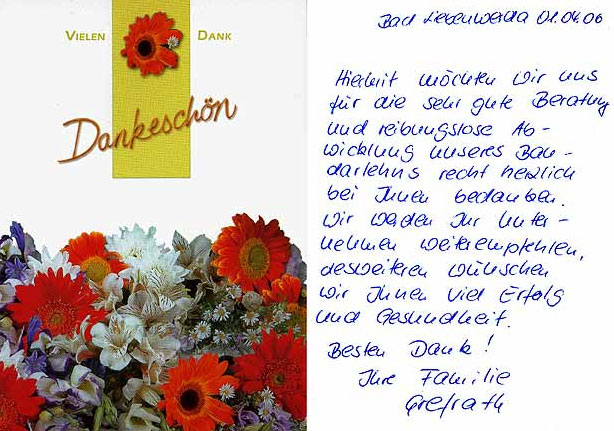 VIELEN DANK
Dankeschön
Bad Liebenwerda 01.04.06
Hiermit möchten wir uns
für die sehr gute Beratung
und reibungslose Ab-
wicklung unseres Bau-
darlehns recht herzlich
bei Ihnen bedanken.
Wir werden Ihr Unter-
nehmen weiterempfehlen,
desweiteren wünschen
wir Ihnen viel Erfolg
und Gesundheit.
Besten Dank!
Ihre Familie
Grefrath